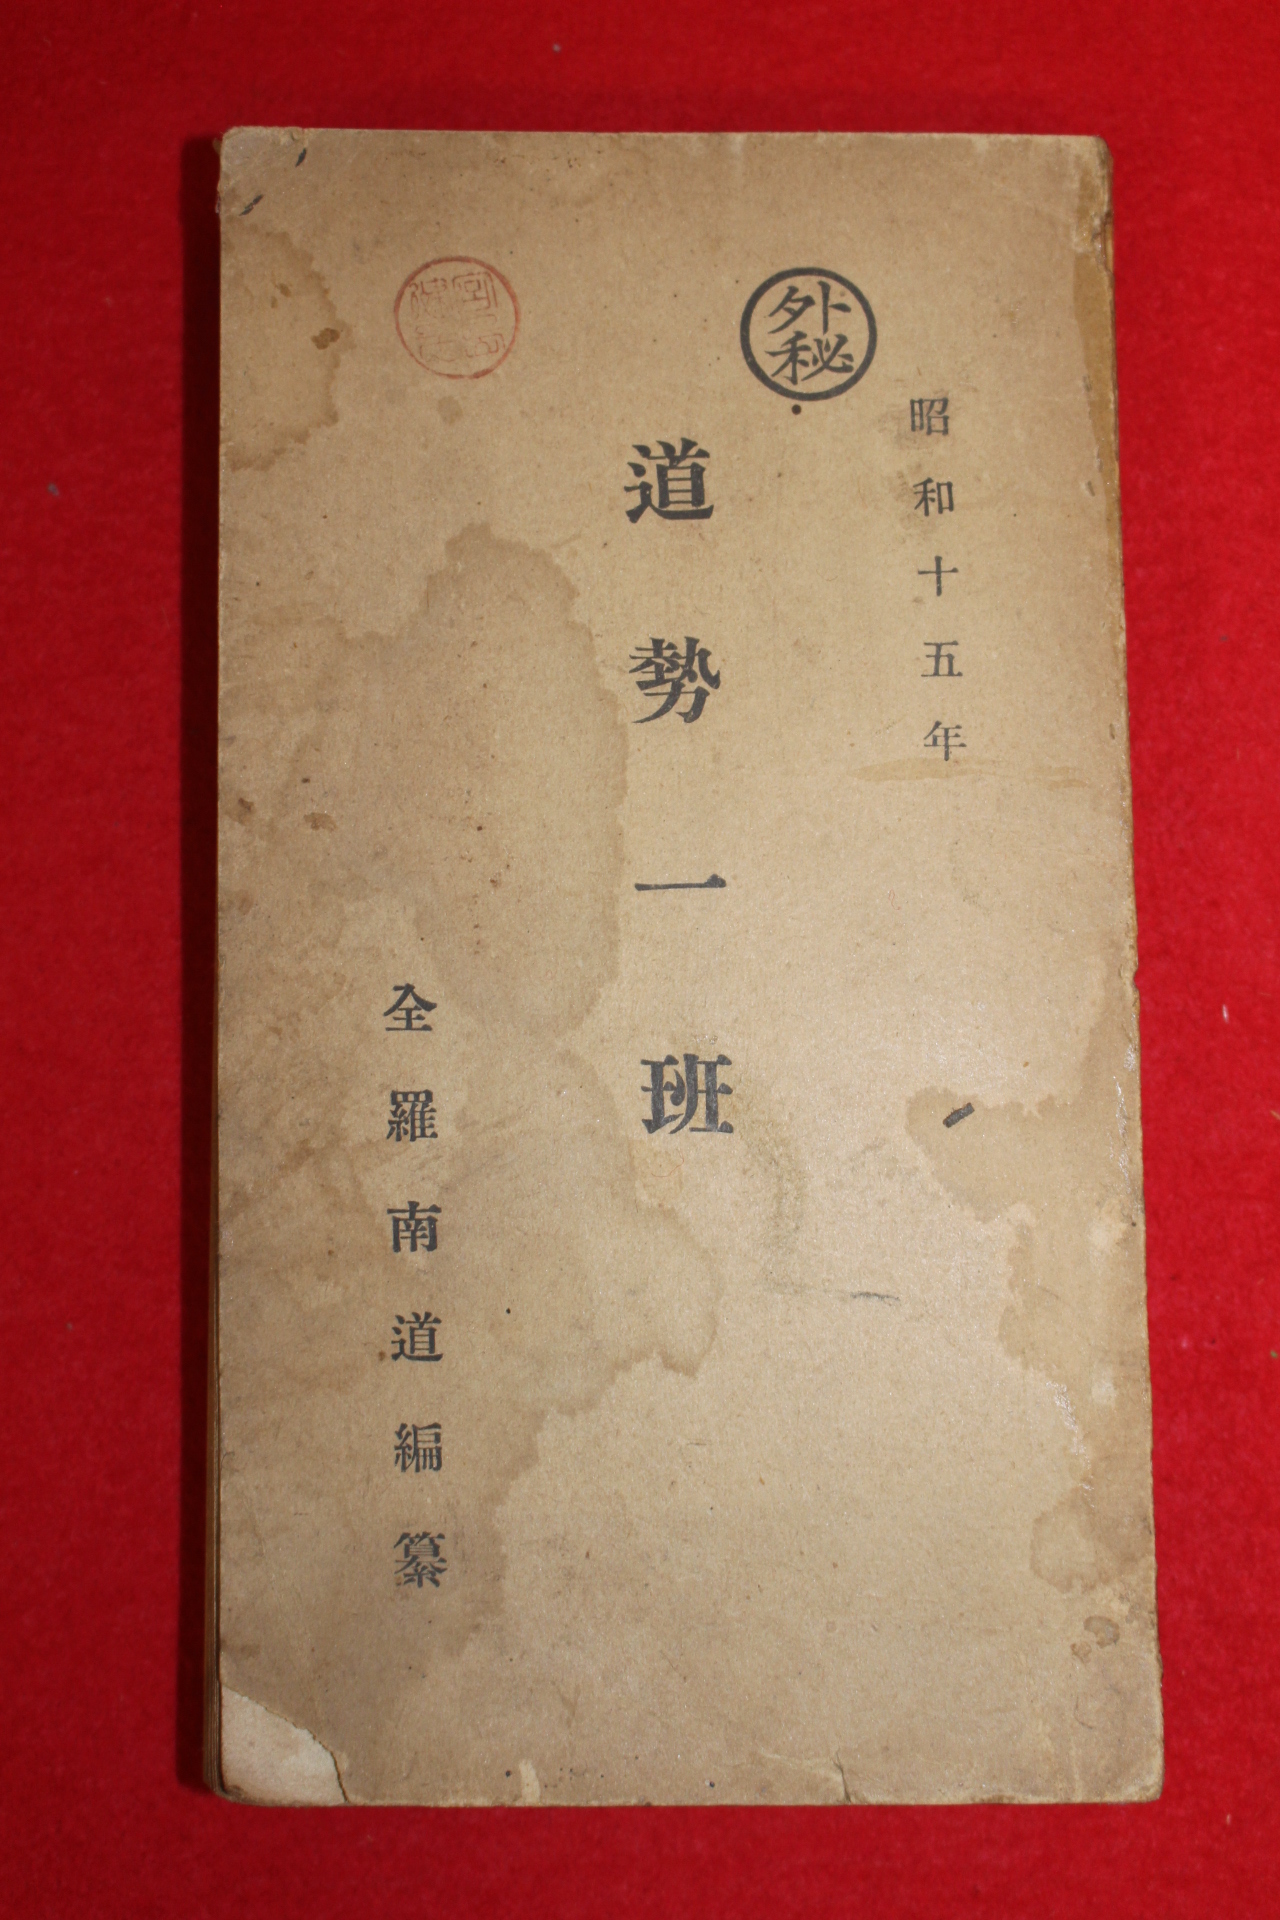 昭和十五年
外秘
道勢一班
全羅南道編纂